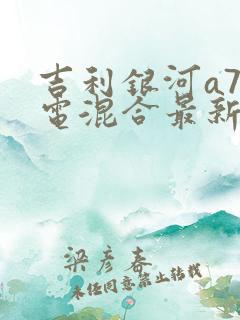 吉利銀河a7
電混合最新
梁彦春
未任同意禁止转载